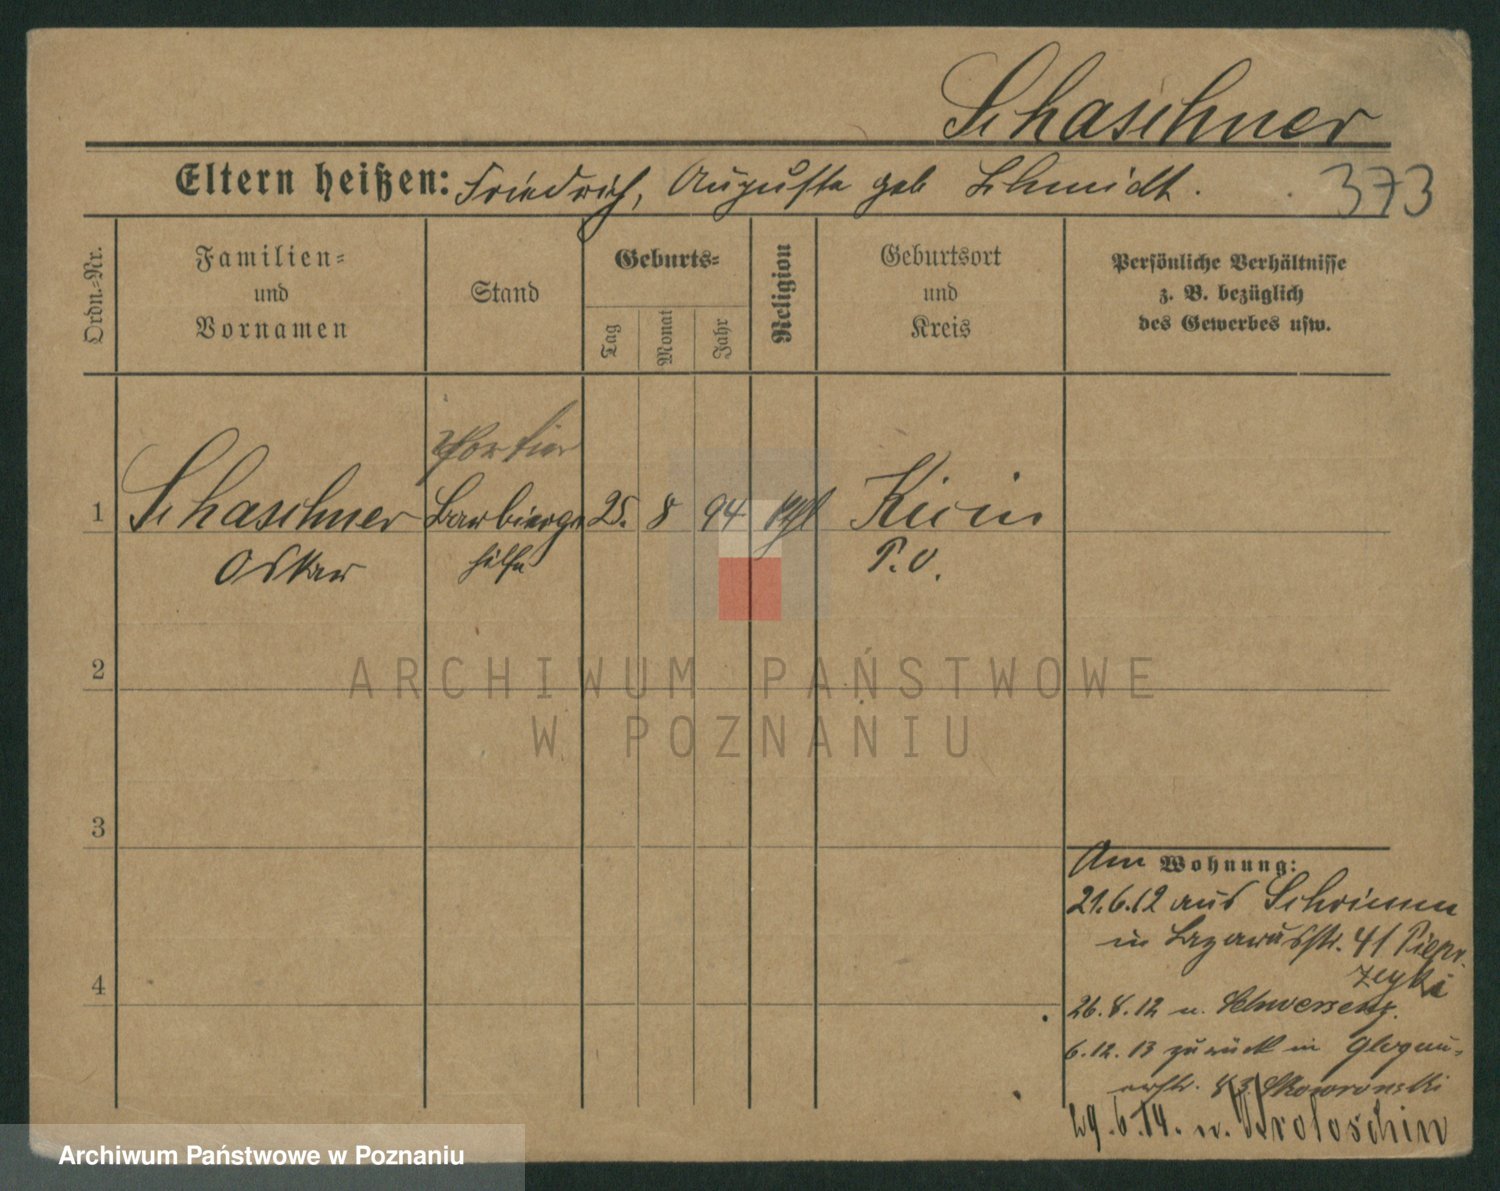 Schaschner
Eltern heißen: Friedrich, Auguste geb Schmidt.
373
Ordn.-Nr.
Familien-
und
Vornamen
Stand
Geburts-
Tag
Monat
Jahr
Religion
Geburtsort
und
Kreis
Persönliche Verhältnisse
z. B. bezüglich
des Gewerbes usw.
Portier
1 Schaschner Barbierge 25. 8 94 Kicin
Oskar hilfe P. O.
2
3
4
Am Wohnung:
21.6.12 aus Schrimm
in Lazarusstr. 41 Piepr
zycki
26.8.12 n. Schwersenz.
6.12.13 zurück in Glogau-
erstr. 83 Skowronski
29.6.14. n. Krotoschin
ARCHIWUM PAŃSTWOWE
W POZNANIU
Archiwum Państwowe w Poznaniu